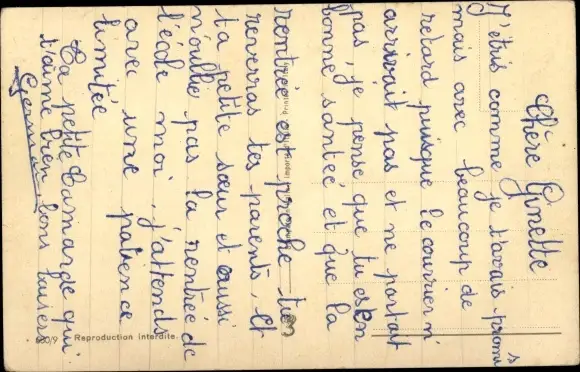 Chère Ginette
J'étris comme je t'avais promis
mais avec beaucoup de
retard puisque le courrier n'
arrivait pas et ne partait
pas, je pense que tu es en
bonne santée, et que la
rentrée est proche tu
reverras tes parents, et
ta petite sœur et aussi
n'oublie pas la rentrée de
l'école moi, j'attends
avec une patience
limitée
Ta petite Camarade qui
t'aime bien bons baisers
Germaine
Reproduction interdite.